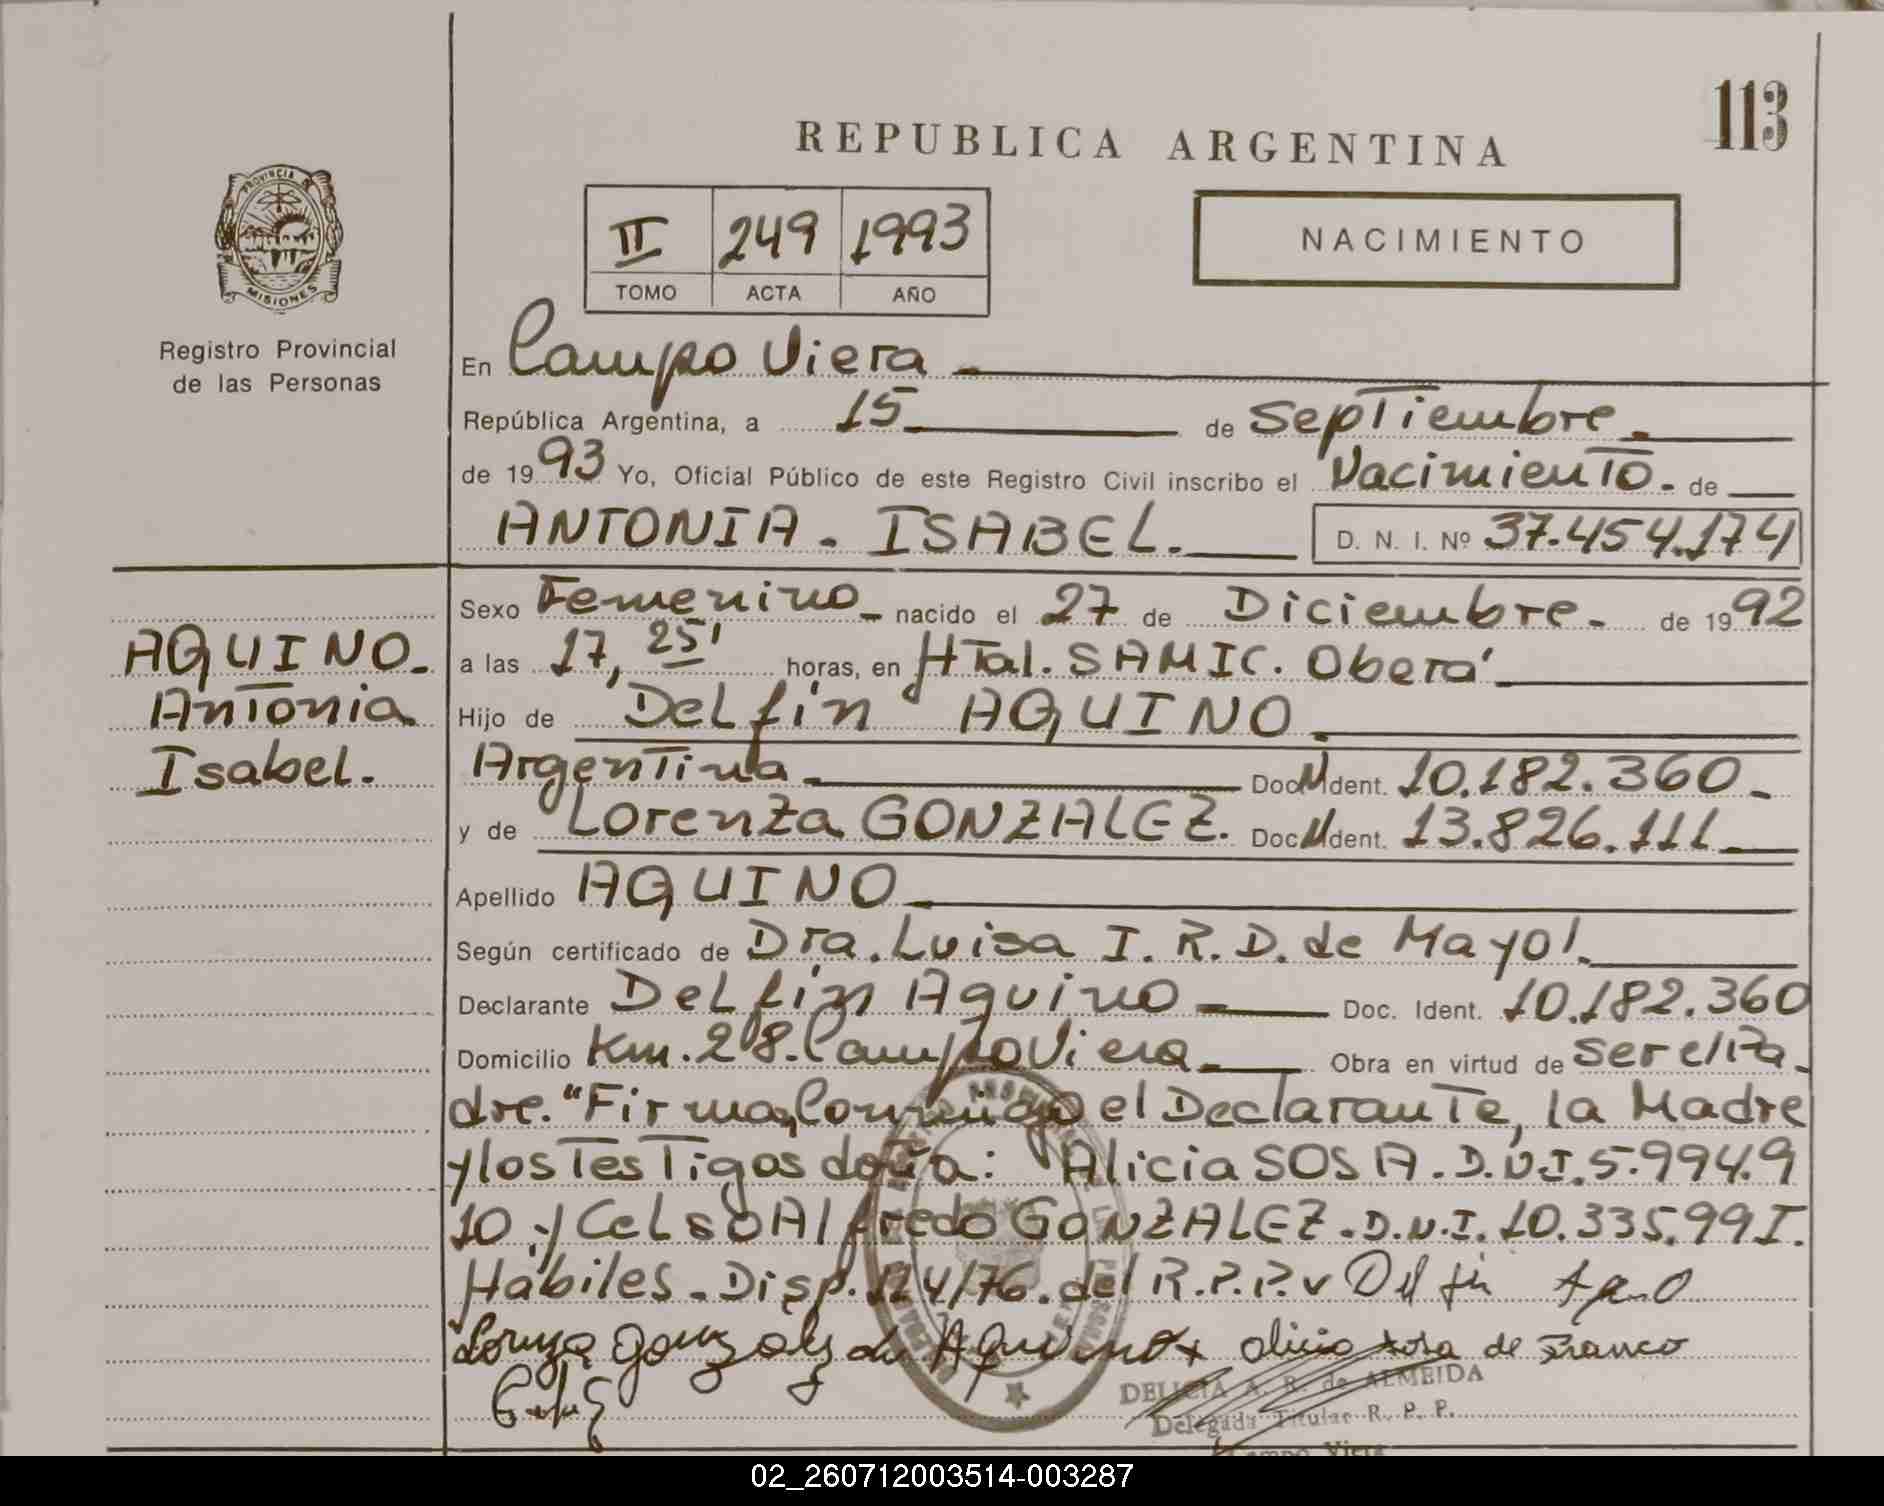 113
REPUBLICA ARGENTINA
PROVINCIA DE
MISIONES
Registro Provincial
de las Personas
II 249 1993
TOMO ACTA AÑO
NACIMIENTO
En Campo Viera
República Argentina, a 15 de Septiembre.
de 1993 Yo, Oficial Público de este Registro Civil inscribo el Nacimiento. de
ANTONIA. ISABEL. D. N. I. Nº 37.454.174
AQUINO.
Antonia
Isabel.
Sexo Femenino nacido el 27 de Diciembre. de 1992
a las 17, 25' horas, en HTal. SAMIC. Oberá
Hijo de Delfín AQUINO.
Argentina. Doc. Ident. 10.182.360
y de Lorenza GONZALEZ. Doc. Ident. 13.826.111
Apellido AQUINO
Según certificado de Dra. Luisa I. R. D. de Mayol.
Declarante Delfín Aquino Doc. Ident. 10.182.360
Domicilio Km. 28. Campo Viera Obra en virtud de ser el Pa-
dre. "Firman Conmigo el Declarante, la Madre
y los Testigos doña: Alicia SOSA. D.N.I. 5.994.9
10 y Celso Alfredo GONZALEZ. D.N.I. 10.335.991.
Hábiles. Disp. 124/76. del R.P.P.
Gonzalez de Aquino Alicia Sosa de Franco
DELICIA A. R. de ALMEIDA
Delegada Titular R. P. P.
Campo Viera
02_260712003514-003287